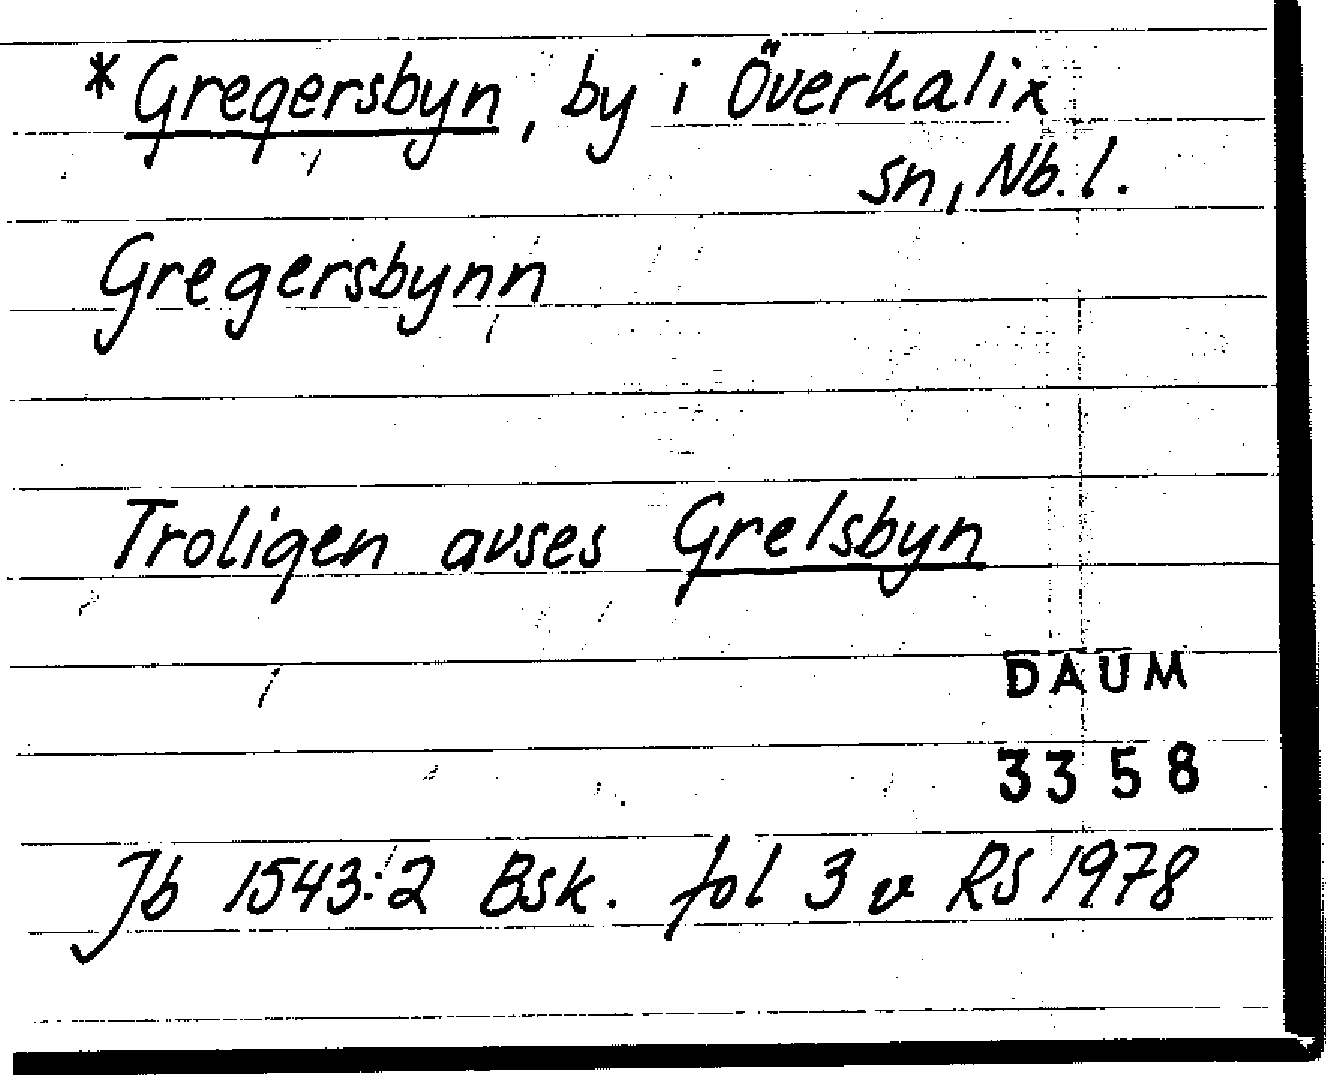 *Gregersbyn, by i Överkalix
sn, Nb.l.
Gregersbynn
Troligen avses Grelsbyn
DAUM
3358
Jb 1543:2 Bsk. fol 3 v RS 1978